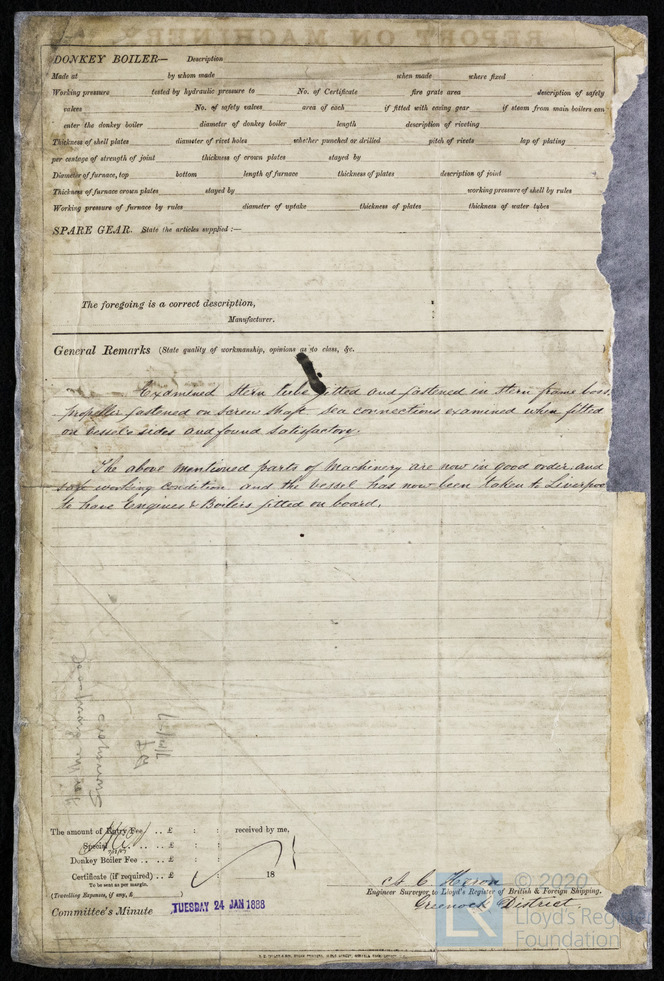 DONKEY BOILER— Description
Made at by whom made when made where fixed
Working pressure tested by hydraulic pressure to No. of Certificate fire grate area description of safety
valves No. of safety valves area of each if fitted with easing gear if steam from main boilers can
enter the donkey boiler diameter of donkey boiler length description of riveting
Thickness of shell plates diameter of rivet holes whether punched or drilled pitch of rivets lap of plating
per centage of strength of joint thickness of crown plates stayed by
Diameter of furnace, top bottom length of furnace thickness of plates description of joint
Thickness of furnace crown plates stayed by working pressure of shell by rules
Working pressure of furnace by rules diameter of uptake thickness of plates thickness of water tubes
SPARE GEAR. State the articles supplied :—
The foregoing is a correct description,
Manufacturer.
General Remarks (State quality of workmanship, opinions as to class, &c.
Examined Stern tube fitted and fastened in Stern frame boss.
propeller fastened on Screw shaft sea connections examined when fitted
on vessels sides and found satisfactory.
The above mentioned parts of Machinery are now in good order and
safe working condition and the vessel has now been taken to Liverpoo
to have Engines & Boilers fitted on board.
The amount of Entry Fee .. £ : : received by me,
Special .. £ : :
Donkey Boiler Fee .. £ : :
Certificate (if required) .. £ : : 18
To be sent as per margin.
(Travelling Expenses, if any, £ )
Committee's Minute
TUESDAY 24 JAN 1888
Engineer Surveyor to Lloyd's Register of British & Foreign Shipping.
Greenock District.
© 2020
LR
Lloyd's Register
Foundation